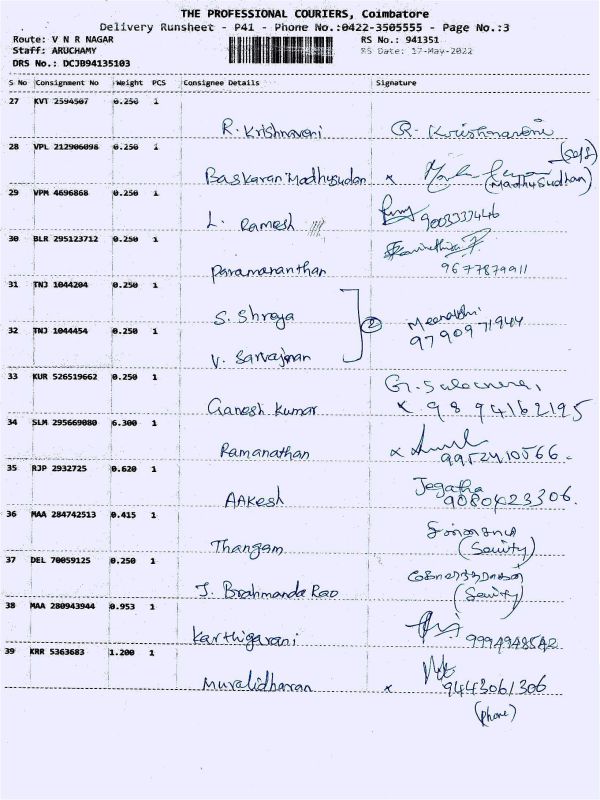 THE PROFESSIONAL COURIERS, Coimbatore
Delivery Runsheet - P41 - Phone No.:0422-3505555 - Page No.:3
Route: V N R NAGAR RS No.: 941351
Staff: ARUCHAMY RS Date: 17-May-2022
DRS No.: DCJB94135103
S No Consignment No Weight PCS Consignee Details Signature
27 KVT 2594507 0.250 1
R. Krishnaveni R. Krishnaveni
28 VPL 212906098 0.250 1 (Self)
Baskaran Madhusudan x (Madhusudhan)
29 VPM 4696868 0.250 1
L. Ramesh 9003333446
30 BLR 295123712 0.250 1
Paramananthan 9677879911
31 TNJ 1044204 0.250 1
S. Shreya 2 Meenakshi
32 TNJ 1044454 0.250 1 9790971944
V. Sarvajnan
33 KUR 526519662 0.250 1
Ganesh Kumar x 9894162195
34 SLM 295669080 6.300 1
Ramanathan x 9952410566.
35 RJP 2932725 0.620 1 Jegatha
AAkesh 9080423306.
36 MAA 284742513 0.415 1
Thangam (Security)
37 DEL 70059125 0.250 1
J. Brahmanda Rao (Security)
38 MAA 280943944 0.953 1
Karthigarani 9994948542
39 KRR 5363683 1.200 1
Muralidharan x 9443061306
(Phone)